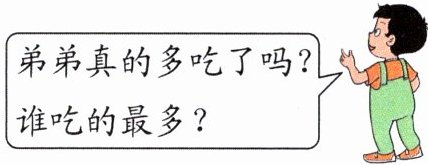 弟弟真的多吃了吗？
谁吃的最多？